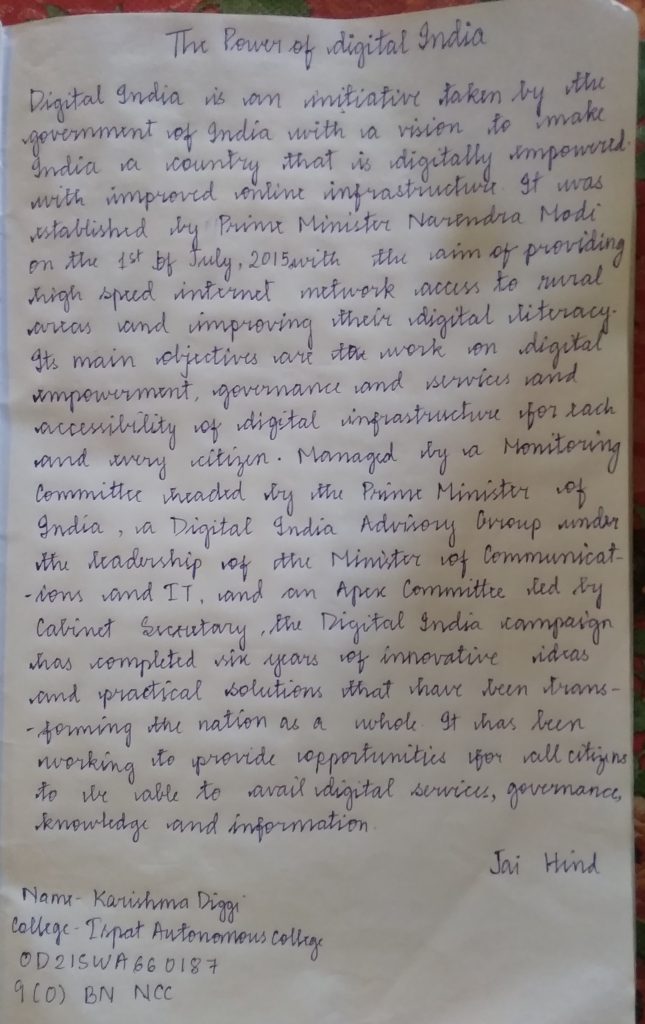 The Power of digital India
Digital India is an initiative taken by the
government of India with a vision to make
India a country that is digitally empowered.
with improved online infrastructure. It was
established by Prime Minister Narendra Modi
on the 1st of July, 2015 with the aim of providing
high speed internet network access to rural
areas and improving their digital literacy.
Its main objectives are the work on digital
empowerment, governance and services and
accessibility of digital infrastructure for each
and every citizen. Managed by a Monitoring
Committee headed by the Prime Minister of
India, a Digital India Advisory Group under
the leadership of the Minister of Communicat-
-ions and IT, and an Apex Committee led by
Cabinet Secretary, the Digital India campaign
has completed six years of innovative ideas
and practical solutions that have been trans-
-forming the nation as a whole. It has been
working to provide opportunities for all citizens
to be able to avail digital services, governance,
knowledge and information.
Jai Hind
Name- Karishma Diggi
College- Ispat Autonomous College
OD21SWA660187
9(O) BN NCC